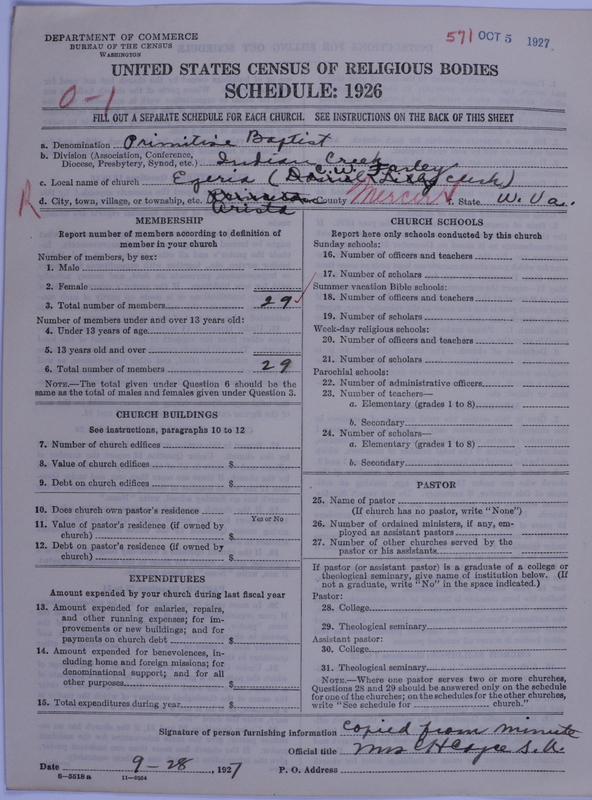 DEPARTMENT OF COMMERCE
BUREAU OF THE CENSUS
WASHINGTON
571 OCT 5 1927.
UNITED STATES CENSUS OF RELIGIOUS BODIES
SCHEDULE: 1926
0-1
FILL OUT A SEPARATE SCHEDULE FOR EACH CHURCH. SEE INSTRUCTIONS ON THE BACK OF THIS SHEET
a. Denomination Primitive Baptist
b. Division (Association, Conference,
Diocese, Presbytery, Synod, etc.) Indian Creek
C. W. Farley
c. Local name of church Egeria ( clerk)
R
d. City, town, village, or township, etc. County Mercer State W. Va.
Arista
MEMBERSHIP
Report number of members according to definition of
member in your church
Number of members, by sex:
1. Male
2. Female
3. Total number of members 29
Number of members under and over 13 years old:
4. Under 13 years of age
5. 13 years old and over
6. Total number of members 29
NOTE.—The total given under Question 6 should be
the same as the total of males and females given under Question 3.
CHURCH BUILDINGS
See instructions, paragraphs 10 to 12
7. Number of church edifices
8. Value of church edifices $
9. Debt on church edifices $
10. Does church own pastor's residence
Yes or No
11. Value of pastor's residence (if owned by
church) $
12. Debt on pastor's residence (if owned by
church) $
EXPENDITURES
Amount expended by your church during last fiscal year
13. Amount expended for salaries, repairs,
and other running expenses; for im-
provements or new buildings; and for
payments on church debt $
14. Amount expended for benevolences, in-
cluding home and foreign missions; for
denominational support; and for all
other purposes $
15. Total expenditures during year $
CHURCH SCHOOLS
Report here only schools conducted by this church
Sunday schools:
16. Number of officers and teachers
17. Number of scholars
Summer vacation Bible schools:
18. Number of officers and teachers
19. Number of scholars
Week-day religious schools:
20. Number of officers and teachers
21. Number of scholars
Parochial schools:
22. Number of administrative officers
23. Number of teachers—
a. Elementary (grades 1 to 8)
b. Secondary
24. Number of scholars—
a. Elementary (grades 1 to 8)
b. Secondary
PASTOR
25. Name of pastor
(If church has no pastor, write "None")
26. Number of ordained ministers, if any, em-
ployed as assistant pastors
27. Number of other churches served by the
pastor or his assistants
If pastor (or assistant pastor) is a graduate of a college or
theological seminary, give name of institution below. (If
not a graduate, write "No" in the space indicated.)
Pastor:
28. College
29. Theological seminary
Assistant pastor:
30. College
31. Theological seminary
NOTE.—Where one pastor serves two or more churches,
Questions 28 and 29 should be answered only on the schedule
for one of the churches; on the schedules for the other churches,
write "See schedule for church."
Signature of person furnishing information Copied from minute
Official title Mrs C H Cayce S. A.
Date 9-28, 1927 P. O. Address
8-5518a 11-9564